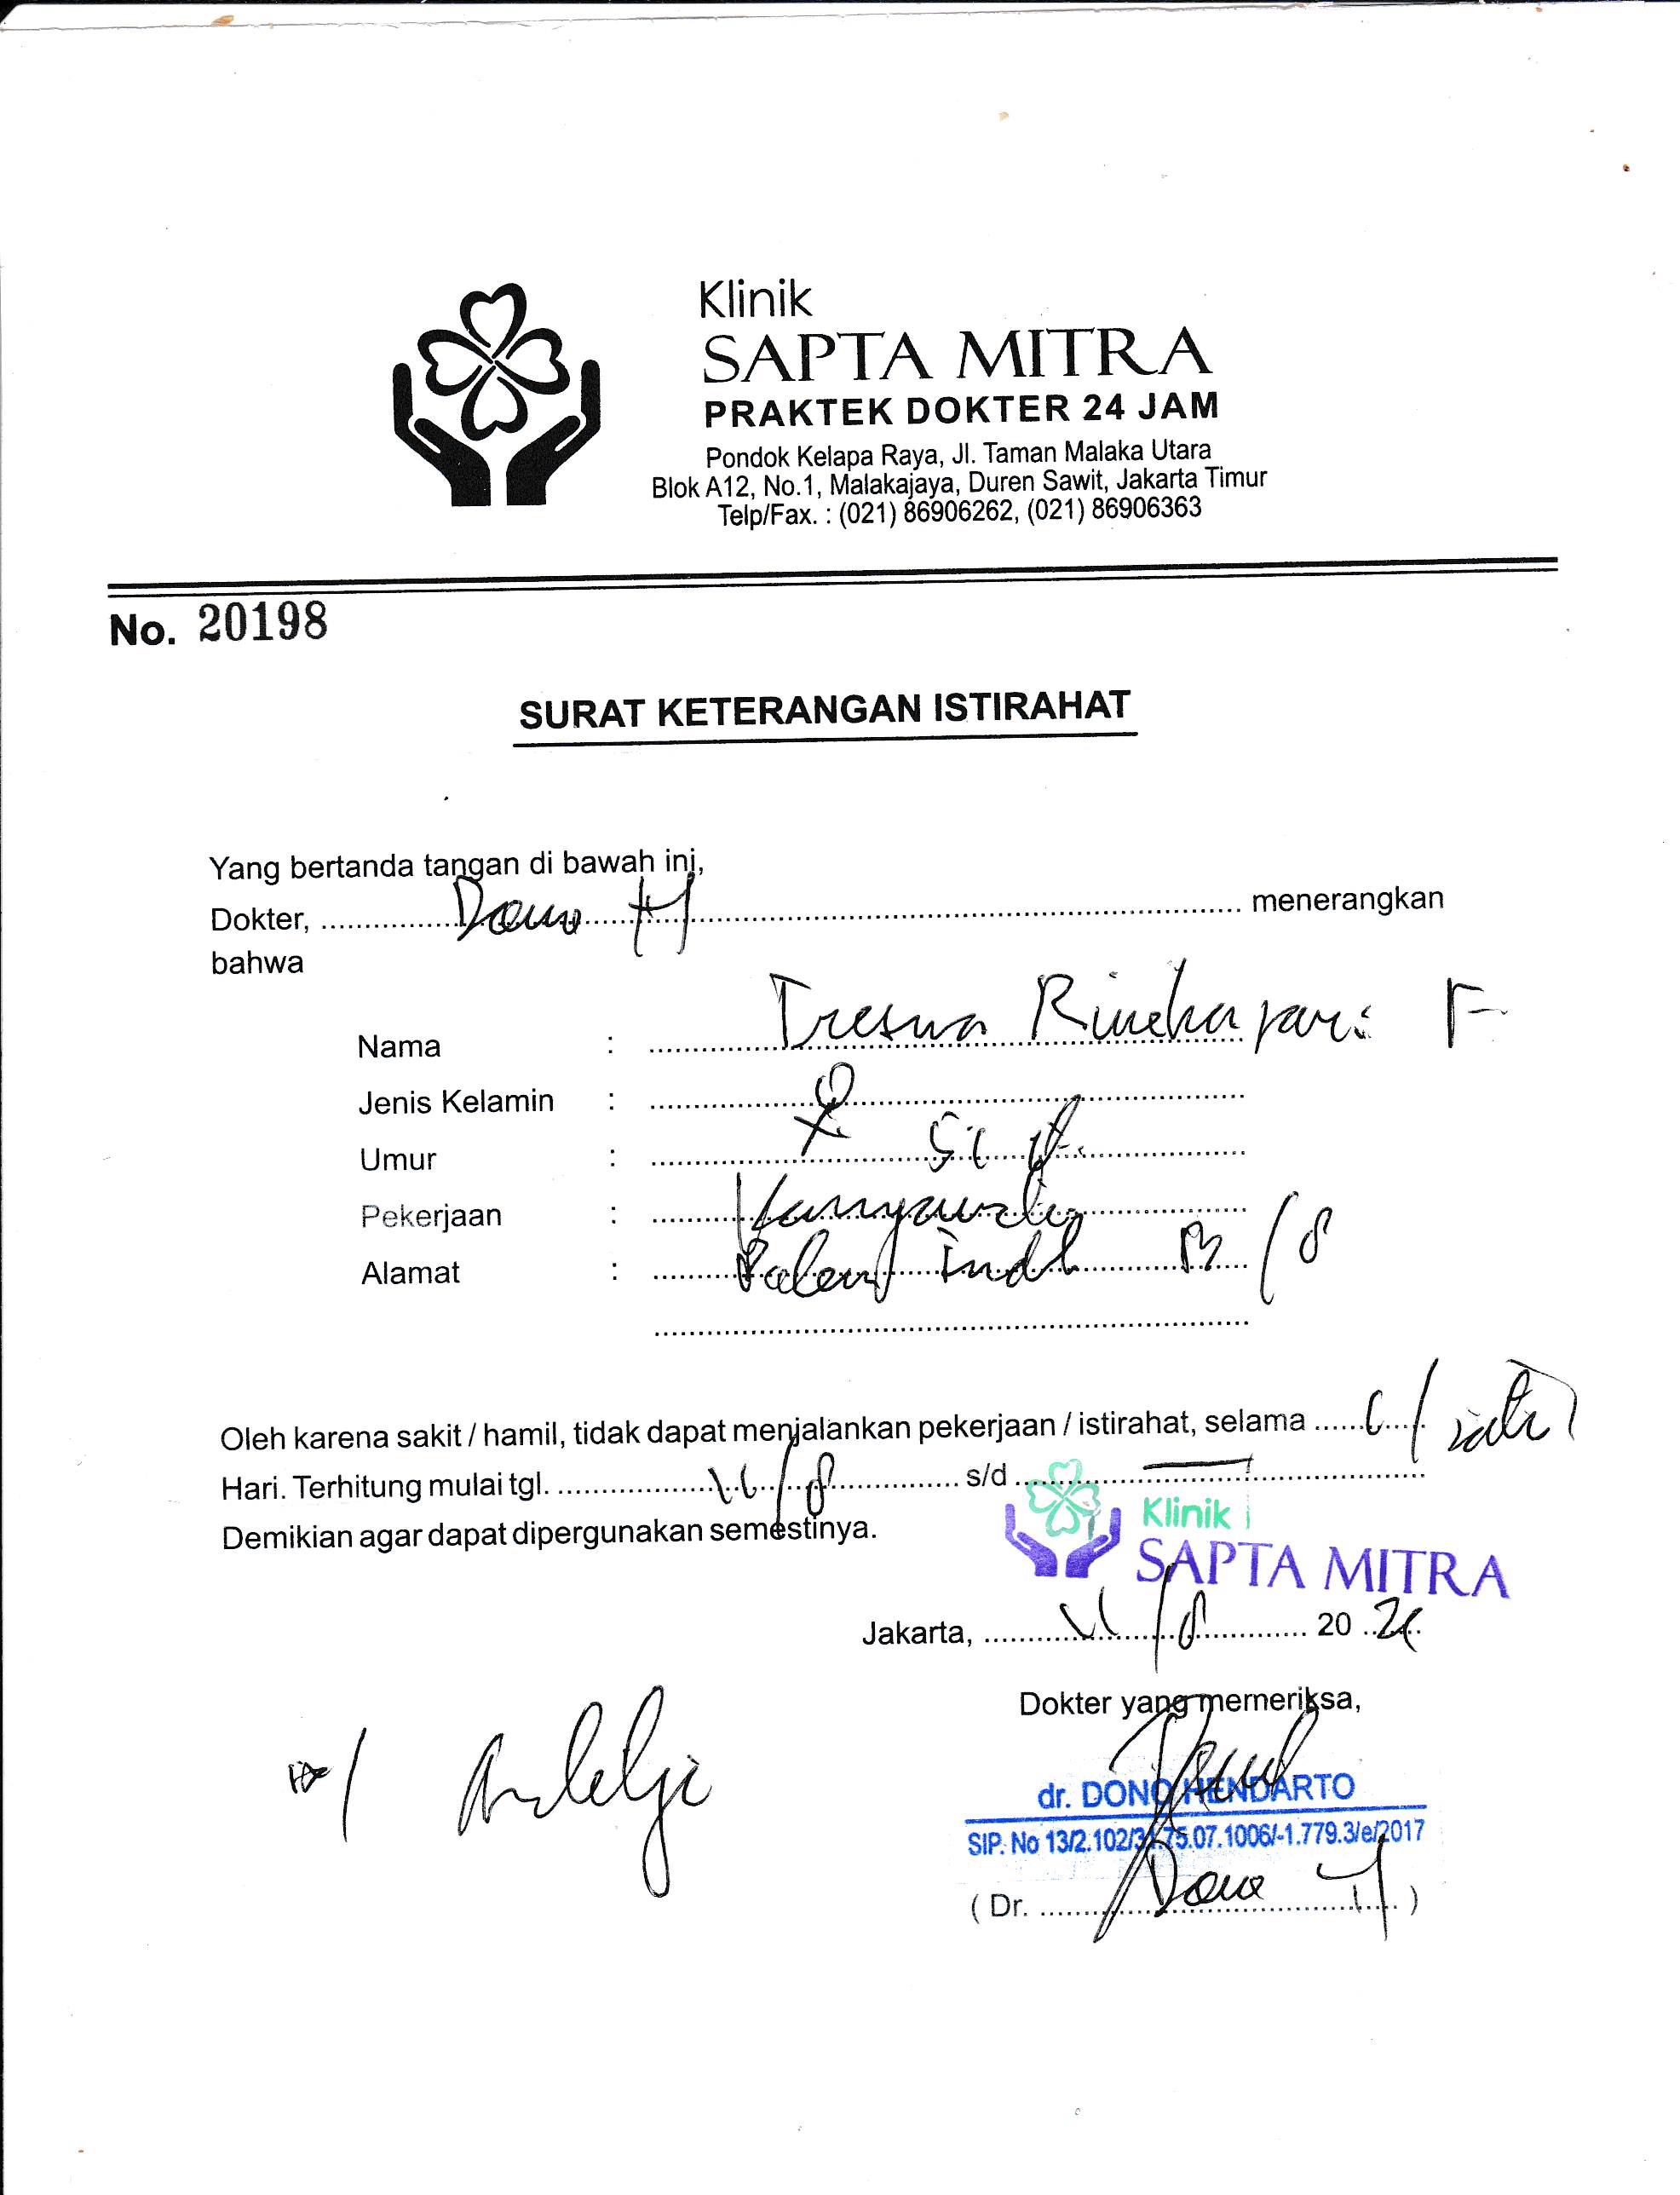 Klinik
SAPTA MITRA
PRAKTEK DOKTER 24 JAM
Pondok Kelapa Raya, Jl. Taman Malaka Utara
Blok A12, No.1, Malakajaya, Duren Sawit, Jakarta Timur
Telp/Fax. : (021) 86906262, (021) 86906363
No. 20198
SURAT KETERANGAN ISTIRAHAT
Yang bertanda tangan di bawah ini,
Dokter, Dono H menerangkan
bahwa
Nama : Tresna
Jenis Kelamin : ♀
Umur :
Pekerjaan :
Alamat :
Oleh karena sakit / hamil, tidak dapat menjalankan pekerjaan / istirahat, selama
Hari. Terhitung mulai tgl. s/d —
Demikian agar dapat dipergunakan semestinya.
Klinik
SAPTA MITRA
Jakarta, 20
Dokter yang memeriksa,
dr. DONO HENDARTO
SIP. No 13/2.102/31.75.07.1006/-1.779.3/e/2017
( Dr. Dono H )